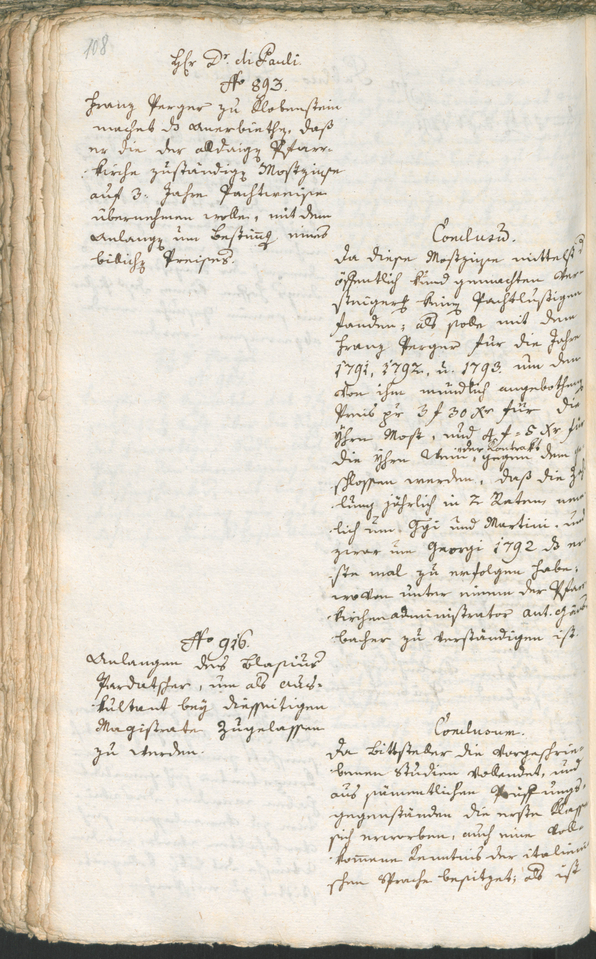 108.
Hr Dr. di Pauli.
No 893.
Franz Perger zu Klobenstein
machet ds Anerbiethen, daß
er die der alldaigen Pfarr-
kirche zuständigen Mostzinse
auf 3. Jahre Pachtweise
übernehmen wolle, mit dem
Anlangen um Bestimung eines
billichen Preises.
Conclusum.
Da diese Mostzinse mittelst
öffentlich kund gemachten Ver-
steigerung keine Pachtlustigen
fanden; als solle mit dem
Franz Perger für die Jahre
1791, 1792, u. 1793. um den
von ihm mündlich angebothenen
Preis pr 3 f 30 Xr für die
Yhrn Most, und 4 f = 5 Xr für
die Yhrn Wein, gegen dem
der Contrakt
schlossen werden, daß die Zah-
lung jährlich in 2 Raten, nem-
lich um Ggi und Martini, und
zwar um Georgi 1792 ds er-
ste mal zu erfolgen habe;
wovon unter einem der Pfarr-
kirchenadministrator ant.
bacher zu verständigen ist.
No 916.
Anlangen des Blasius
Pardatscher, um als Aus-
kultant bey diesseitigen
Magistrate zugelassen
zu werden.
Conclusum.
Da Bittsteller die vorgeschrie-
benen Studien vollendet, und
aus säment­lichen Prüffungs-
gegenständen die erste Klasse
sich erworben, auch eine voll-
kommene Kenntnis der italieni-
schen Sprache besitzet; als ist